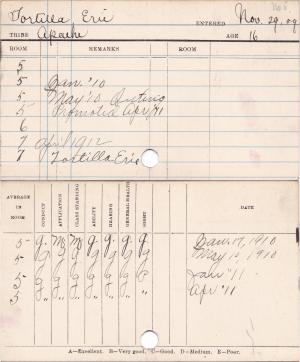 Tortilla Eric ENTERED Nov. 29, 09
TRIBE Apache AGE 16
ROOM REMARKS ROOM
5
5 Jan. '10
5 May '10
5 Promoted Apr/11
6
7 April 1912
7 Tortilla Eric
AVERAGE IN ROOM CONDUCT APPLICATION CLASS STANDING ABILITY HEARING GENERAL HEALTH SIGHT DATE
5 g. M g. g. g. g. Jan. 10, 1910
5 g g g g g g May 10, 1910
5 g g g g g g Jan '11
5 g " " " " " " Apr '11
A—Excellent. B—Very good. C—Good. D—Medium. E—Poor.